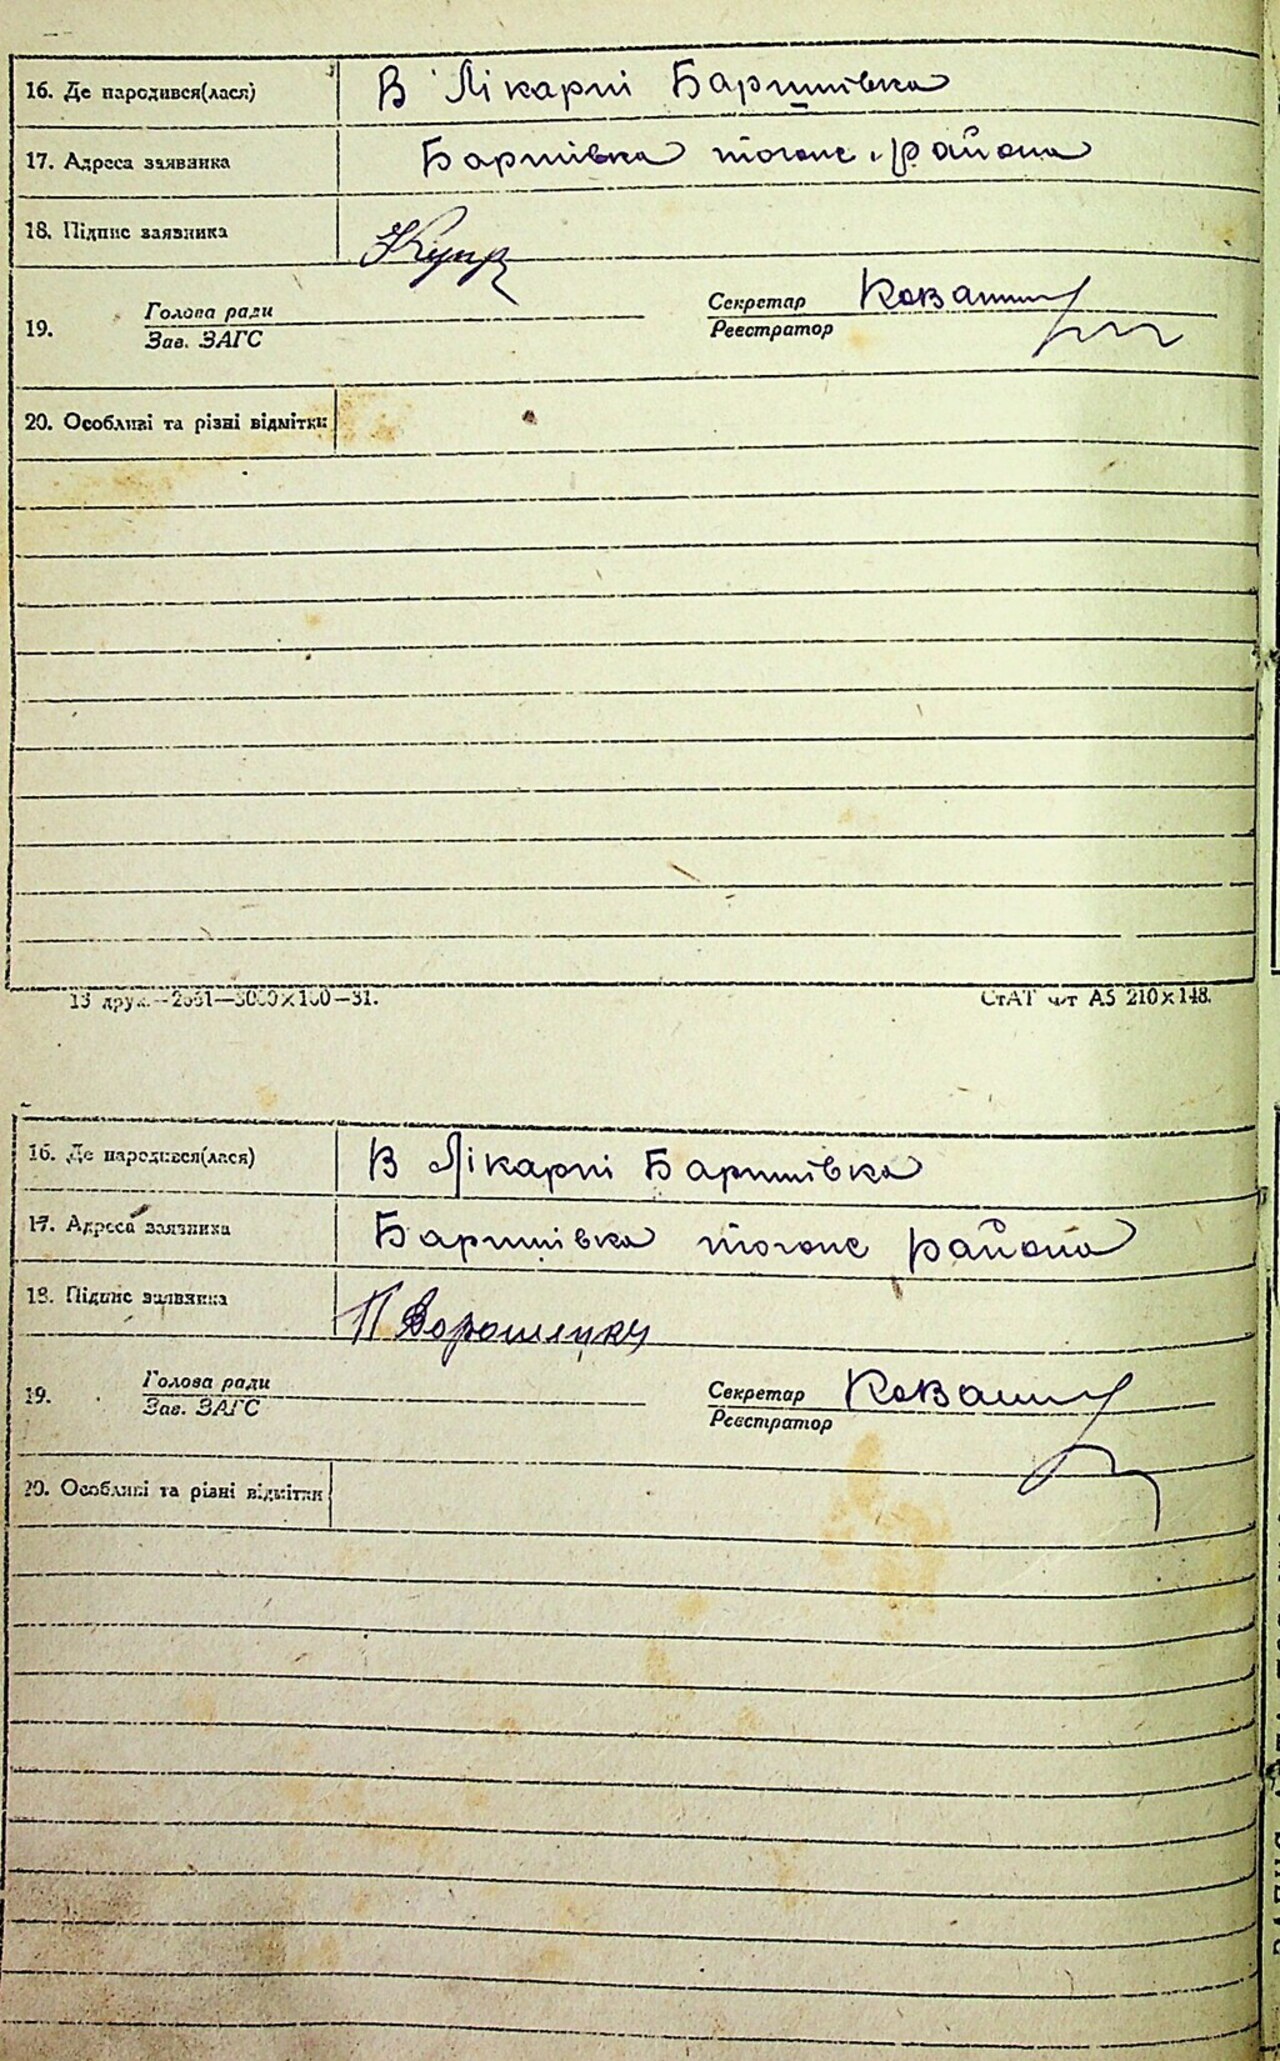 16. Де народився(лася) В Лікарні Баришівка
17. Адреса заявника Баршівка тогоже района
18. Підпис заявника
19. Голова ради Секретар
Зав. ЗАГС Реєстратор
20. Особливі та різні відмітки
13 друк.—2661—3000×100—31. СтАТ ф-т А5 210×148.
16. Де народився(лася) В Лікарні Баришівка
17. Адреса заявника Баришівка тогоже района
18. Підпис заявника П Ворошинку
19. Голова ради Секретар
Зав. ЗАГС Реєстратор
20. Особливі та різні відмітки